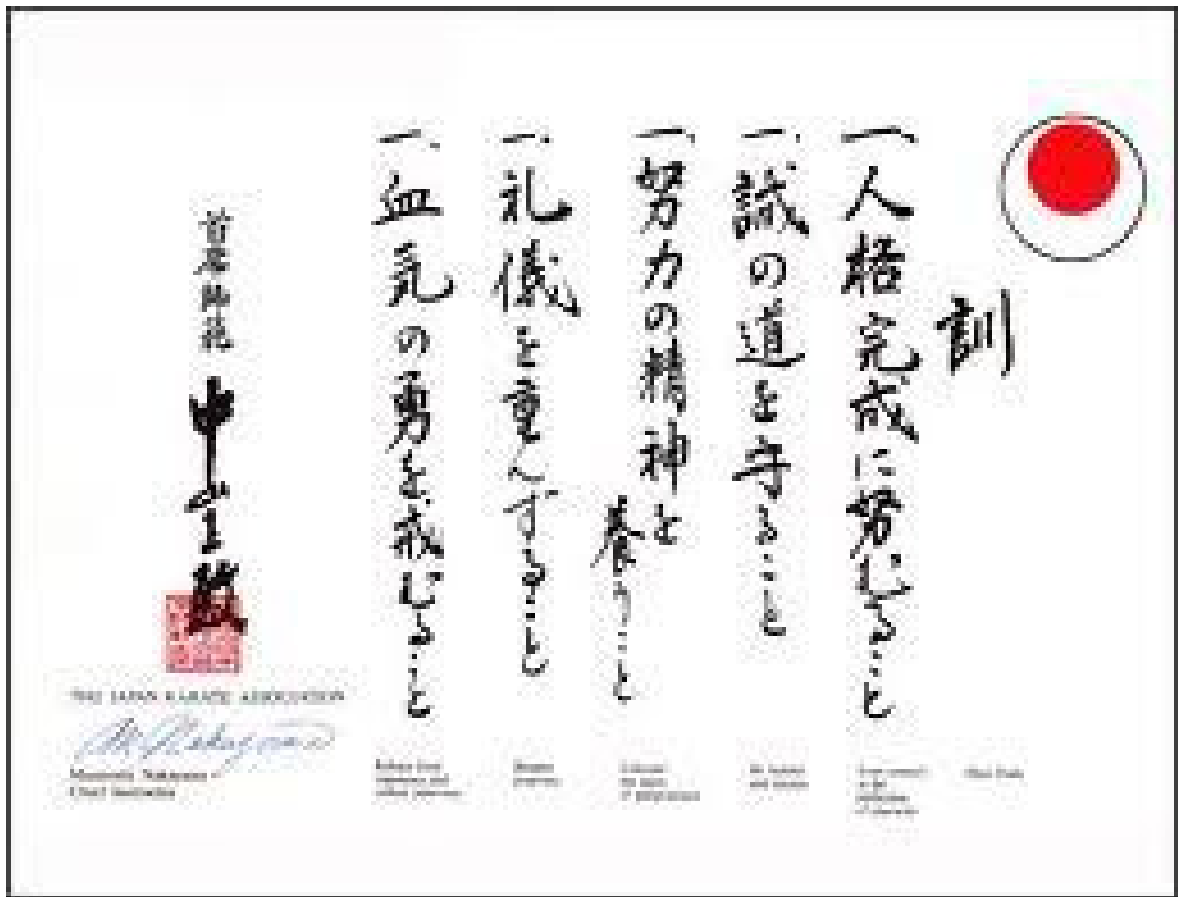 訓
一、人格完成に努むること
一、誠の道を守ること
一、努力の精神を
養うこと
一、礼儀を重んずること
一、血気の勇を戒むること
首席師範 中山正敏
THE JAPAN KARATE ASSOCIATION
M. Nakayama
Masatoshi Nakayama
Chief Instructor